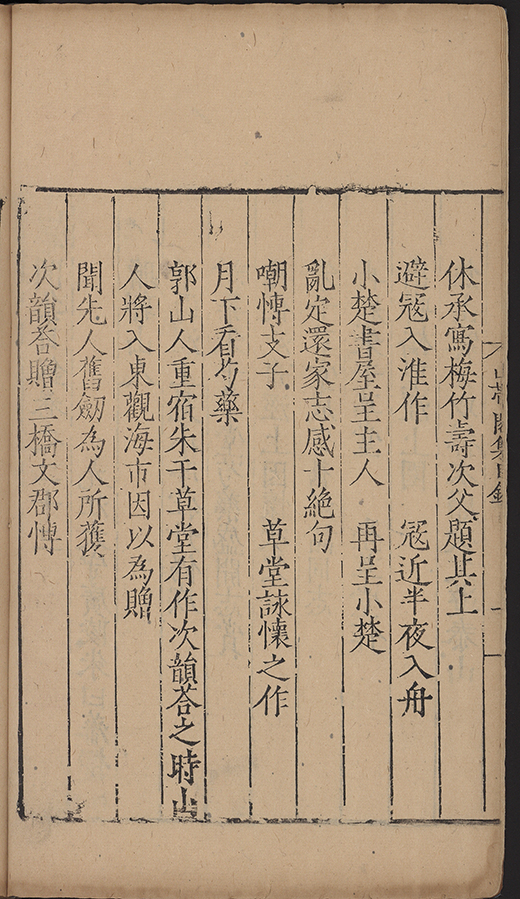 休承寫梅竹壽次父題其上
避寇入淮作　寇近半夜入舟
小楚書屋呈主人　再呈小楚
亂定還家志感十絶句
嘲愽支子　草堂詠懷之作
月下看芍藥
郭山人重宿朱干草堂有作次韻荅之時山
人將入東觀海市因以為贈
聞先人舊劒為人所獲
次韻荅贈三橋文郡愽